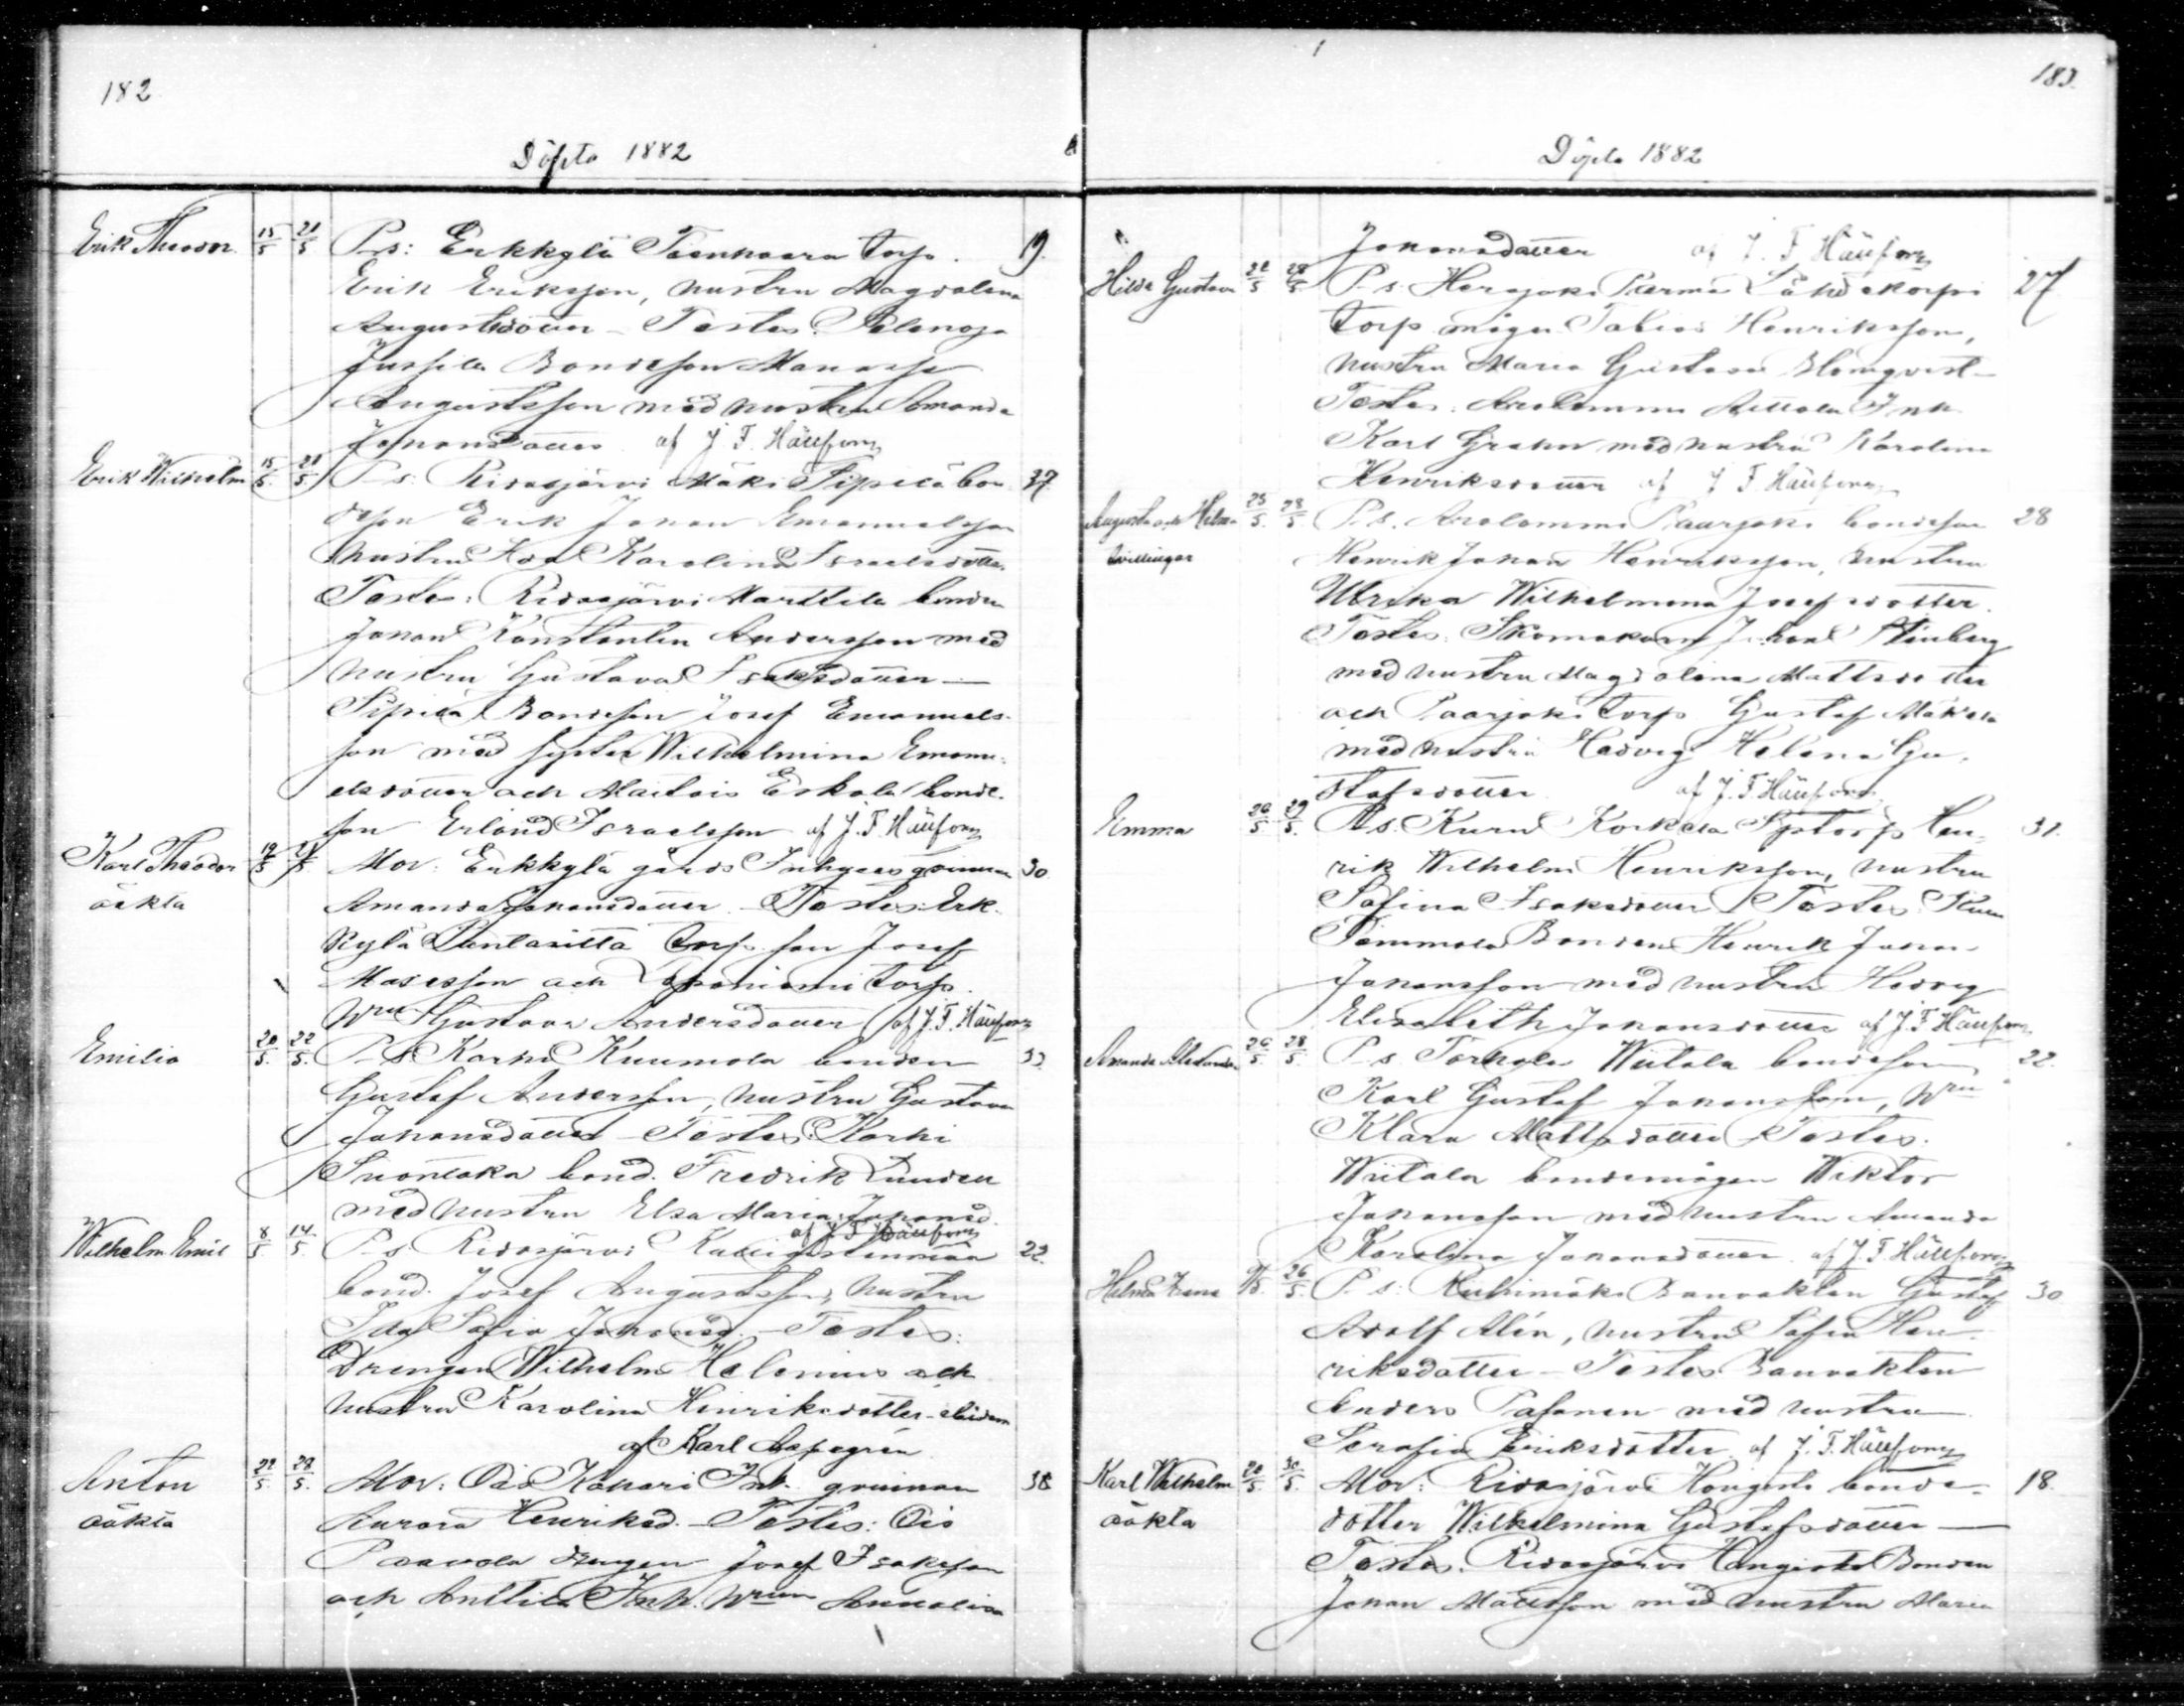 182
Döpta 1882
Erik Theodor 15/5 21/5 P-s: Erkkylä Torp. 19.
Erik Eriksson, hustru Magdalena
Augustsdotter – Testes:
Jussila Bondeson Manasse
Augustsson med hustru Amanda
Johansdotter af J. F. Hällfors
Erik Wilhelm 15/5 21/5 P-s: Ridasjärvi Mäki Sipilä bon- 37
deson Erik Johan Emanuelsson
hustru Ida Karolina Israelsdotter
Testes: Ridasjärvi Marttila bonden
Johan Konstantin Andersson med
hustru Gustava Isaksdotter –
Sipilä Bondeson Josef Emanuels-
son med syster Wilhelmina Emanu-
elsdotter och Eskola bonde-
son Erland Israelsson af J. F. Hällfors
Karl Theodor 19/5 Mor: Erkkylä gårds Inhyses qvinnan 30
oäkta Amanda Johansdotter – Testes: Erk-
kylä Torp. son Josef
Mosesson och torp.
hru Gustava Andersdotter af J. F. Hällfors
Emilia 20/5 22/5 P-s Karhi Kuumola bonden 33
Gustaf Andersson, hustru Gustava
Johansdotter – Testes: Karhi
bond. Fredrik Lunden
med hustru Elsa Maria Johansd.
af J. F. Hällfors
Wilhelm Emil 8/5 14/5 P-s Ridasjärvi 22.
bond. Josef Augustsson, hustru
Ida Sofia Johansd. – Testes:
Drengen Wilhelm Helenius och
hustru Karolina Henriksdotter
af Karl Aspegrén
Anton 22/5 28/5 Mor: Ois Kanari Inh. qvinnan 38
oäkta Aurora Henriksd. – Testes: Ois
Paavola drengen Josef Isaksson
och Anttila Inh. Annalisa
183.
Döpta 1882
Johansdotter af J. F. Hällfors
Hilda Gustava 22/5 28/5 P-s Herajoki Perma 27
torp. mågen Tobias Henriksson,
hustru Maria Gustava Blomqvist –
Testes: Arolammi Inh.
Karl Grahn med hustru Karolina
Henriksdotter af J. F. Hällfors
Augusta och Hilma 25/5 28/5 P-s. Arolammi Paarjoki bondeson 28
tvillingar Henrik Johan Henriksson, hustru
Ulrika Wilhelmina Josefsdotter.
Testes: Skomakaren Johan Stenberg
med hustru Magdalena Mattsdotter
och Paarjoki torp. Gustaf Mäkelä
med hustru Hedvig Helena Gu-
stafsdotter af J. F. Hällfors
Emma 26/5 29/5 P-s. Kuru Korkela Hen- 31.
rik Wilhelm Henriksson, hustru
Sofina Isaksdotter Testes:
Tommola Bonden Henrik Johan
Johansson med hustru Hedvig
Elisabeth Johansdotter af J. F. Hällfors
Amanda Alexandra 26/5 28/5 P-s Wiitala bondeson 22.
Karl Gustaf Johansson, hru
Klara Mattsdotter Testes:
Wiitala bondemågen Wiktor
Johansson med hustru Amanda
Karolina Johansdotter af J. F. Hällfors
26/5 P-s: Riihimäki Banvakten Gustaf 30
Adolf Alén, hustru Sofia Hen-
riksdotter – Testes Banvakten
Anders Pasanen med hustru
Serafia Eriksdotter af J. F. Hällfors
Karl Wilhelm 20/5 30/5 Mor: Ridasjärvi Hongisto bonde- 18.
oäkta dotter Wilhelmina Gustafsdotter –
Testes: Ridasjärvi Hongisto Bonden
Johan Mattsson med hustru Maria